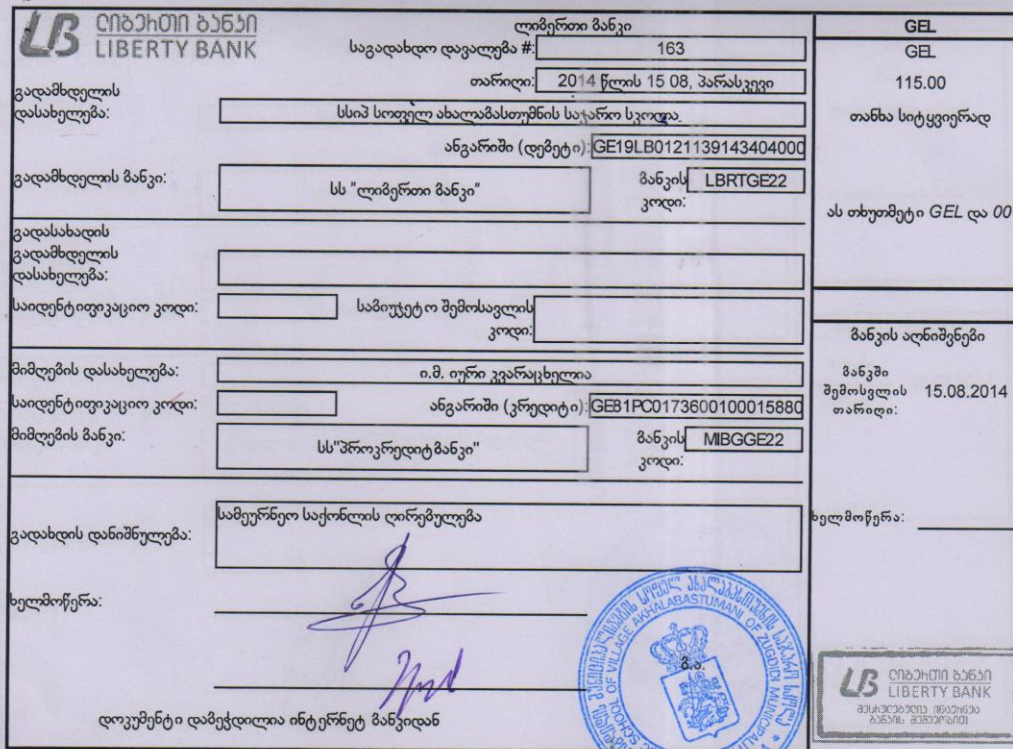 ᲚᲘᲑᲔᲠᲗᲘ ᲑᲐᲜᲙᲘ
LIBERTY BANK
ლიბერთი ბანკი
საგადახდო დავალება #: 163
თარიღი: 2014 წლის 15 08, პარასკევი
გადამხდელის
დასახელება: სსიპ სოფელ ახალაბასთუმნის საჯარო სკოლა.
ანგარიში (დებეტი): GE19LB0121139143404000
გადამხდელის ბანკი: სს "ლიბერთი ბანკი" ბანკის კოდი: LBRTGE22
გადასახადის
გადამხდელის
დასახელება:
საიდენტიფიკაციო კოდი: საბიუჯეტო შემოსავლის
კოდი:
მიმღების დასახელება: ი.მ. იური კვარაცხელია
საიდენტიფიკაციო კოდი: ანგარიში (კრედიტი): GE81PC0173600100015880
მიმღების ბანკი: სს"პროკრედიტბანკი" ბანკის კოდი: MIBGGE22
გადახდის დანიშნულება: სამეურნეო საქონლის ღირებულება
ხელმოწერა:
ბ.ა.
დოკუმენტი დაბეჭდილია ინტერნეტ ბანკიდან
GEL
GEL
115.00
თანხა სიტყვიერად
ას თხუთმეტი GEL და 00
ბანკის აღნიშვნები
ბანკში
შემოსვლის 15.08.2014
თარიღი:
ხელმოწერა:
ᲚᲘᲑᲔᲠᲗᲘ ᲑᲐᲜᲙᲘ
LIBERTY BANK
ᲨᲔᲡᲠᲣᲚᲔᲑᲣᲚᲘᲐ ᲘᲜᲢᲔᲠᲜᲔᲢ
ᲑᲐᲜᲙᲘᲡ ᲛᲔᲨᲕᲔᲝᲑᲘᲗ
SCHOOL OF VILLAGE AKHALABASTUMANI OF ZUGDIDI